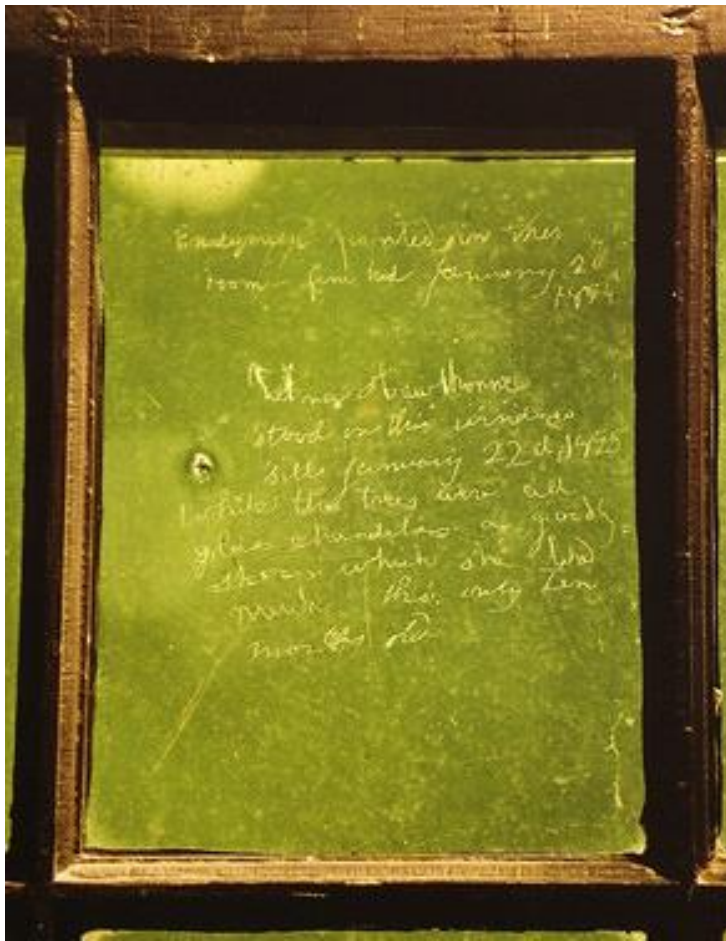 Endymion painted in this
room finished January 20th
1844
Una Hawthorne
stood on this window
sill January 22d 1845
while the trees were all
glass chandeliers a goodly
show which she liked
much tho' only ten
months old